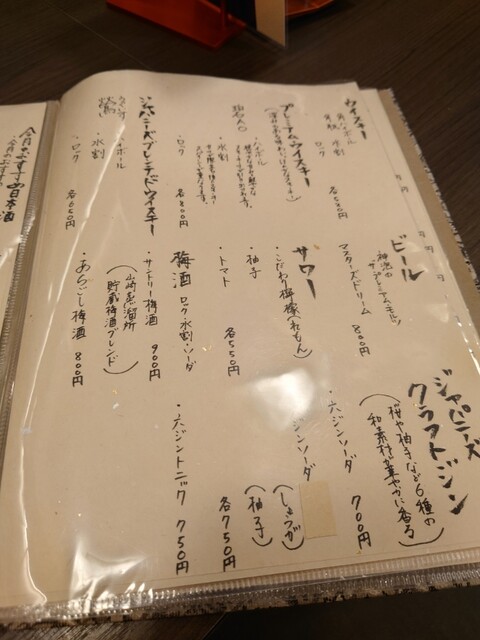 ウイスキー
角ハイボール
角瓶 水割
ロック
各550円
プレミアムウイスキー
知多
・ハイボール
・水割
・ロック
各800円
ジャパニーズブレンデドウイスキー
・水割
・ロック
各650円
ビール
神泡の
ザ・プレミアム・モルツ
マスターズドリーム 800円
サワー
・こだわり檸檬(れもん)
・柚子
・トマト
各550円
梅酒 ロック・水割・ソーダ
・サントリー梅酒 900円
(山崎蒸溜所
貯蔵梅酒ブレンド)
・あらごし梅酒 800円
ジャパニーズ
クラフトジン
(桜や柚子など6種の
和素材が華やかに香る)
・六ジンソーダ 700円
ジンソーダ
(しょうが)
(柚子)
各750円
・六ジントニック 750円
今月のおすすめ日本酒
今月のおすすめ